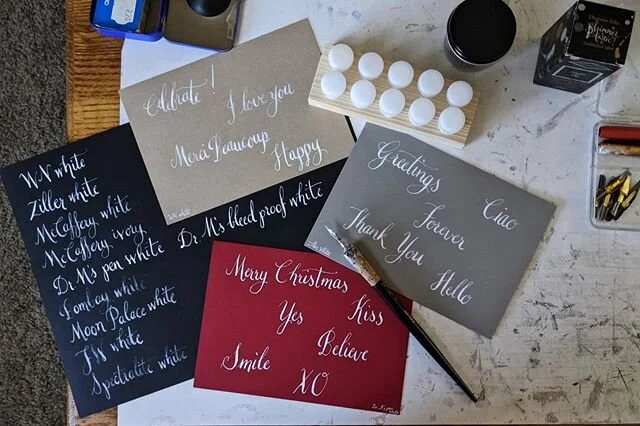 WN white
Ziller white
McCaffery white
McCaffery ivory
Dr M's pen white
Dr M's bleed proof white
Bombay white
Moon Palace white
FW white
Spectrolite white
Celebrate!
I love you
Merci Beaucoup
Happy
WN white
Greetings
Ciao
Forever
Thank You
Hello
Merry Christmas
Yes
Kiss
Believe
Smile
XO